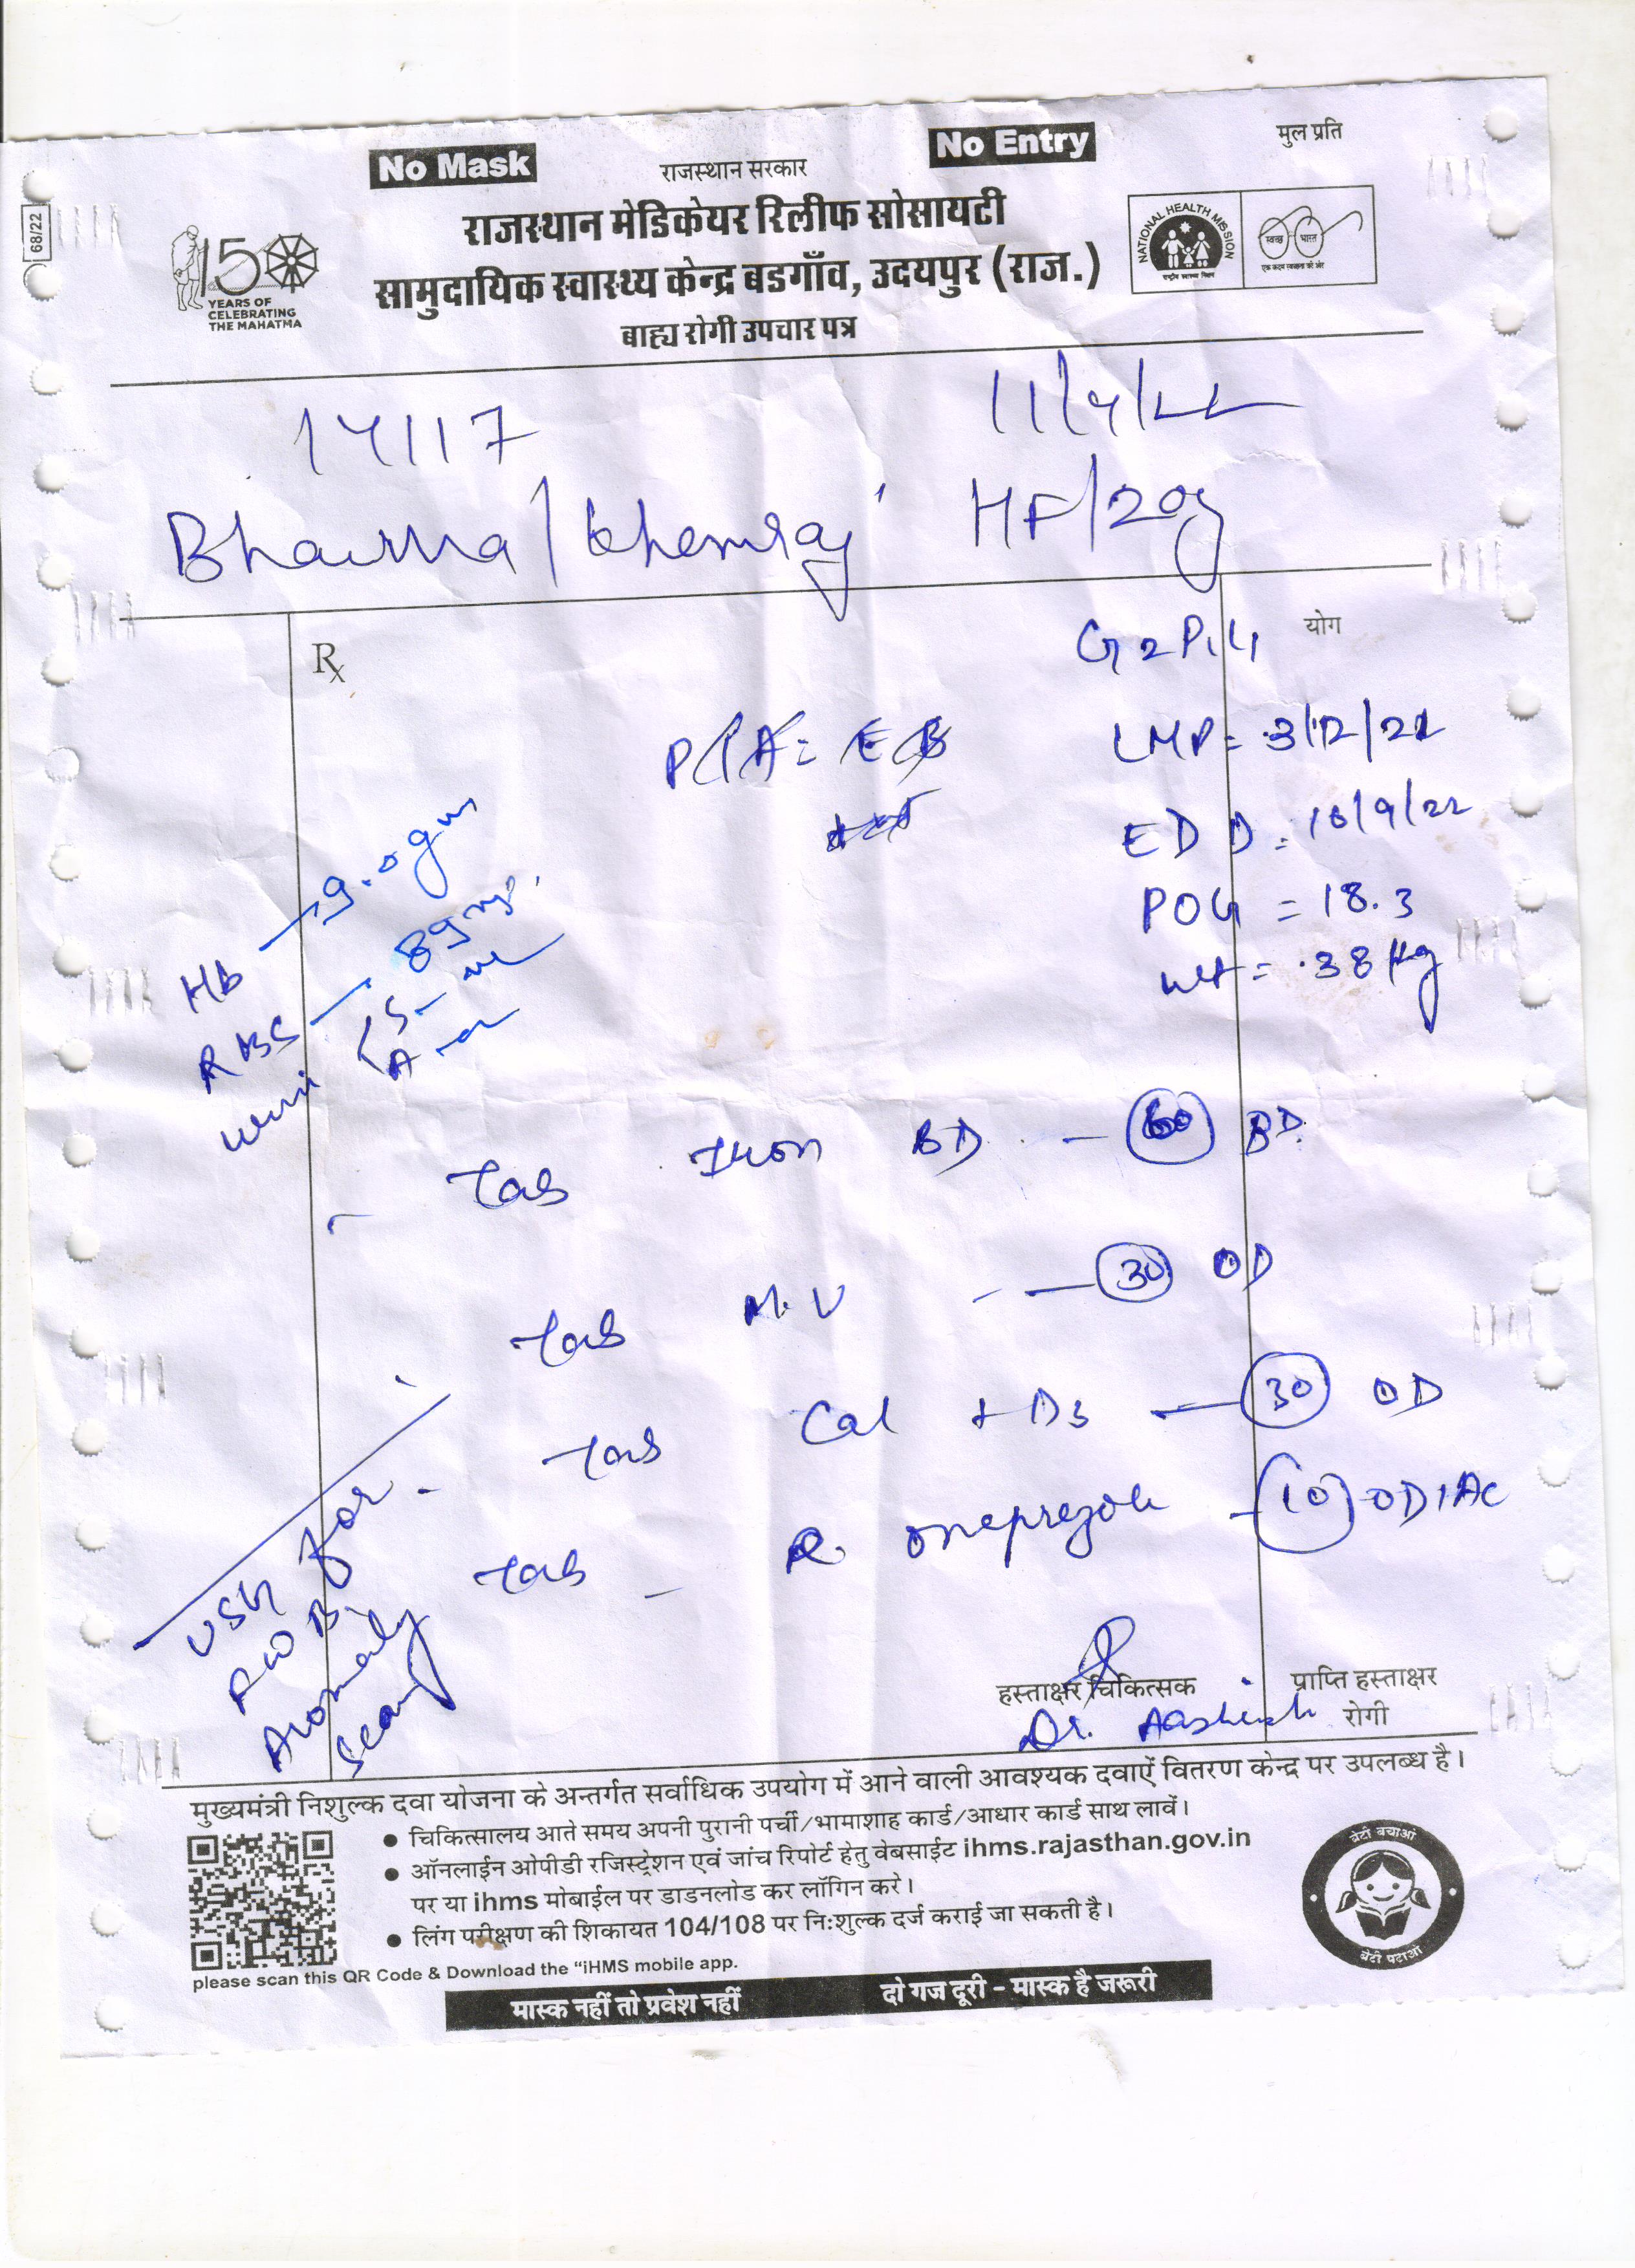 No Mask
No Entry
मुल प्रति
राजस्थान सरकार
68/22
राजस्थान मेडिकेयर रिलीफ सोसायटी
सामुदायिक स्वास्थ्य केन्द्र बडगाँव, उदयपुर (राज.)
बाह्य रोगी उपचार पत्र
150
YEARS OF
CELEBRATING
THE MAHATMA
NATIONAL HEALTH MISSION
राष्ट्रीय स्वास्थ्य मिशन
स्वच्छ भारत
एक कदम स्वच्छता की ओर
14117
11/4/22
Bhawna / khemraj HF/20y
Rx
योग
G2P1L1
P/A =
LMP = 3/12/21
EDD = 10/9/22
POG = 18.3
wt = 38 Kg
Hb → 9.0gm
RBS — 89mg
S - ve
A -
- Tab Iron BD - 60 BD
Tab M.V - 30 OD
- Tab Cal + D3 - 30 OD
Tab - omeprazole - 10 OD 1AC
USG for
FWB
Anomaly
Scan
हस्ताक्षर चिकित्सक
Dr. Aashish
प्राप्ति हस्ताक्षर
रोगी
मुख्यमंत्री निशुल्क दवा योजना के अन्तर्गत सर्वाधिक उपयोग में आने वाली आवश्यक दवाएें वितरण केन्द्र पर उपलब्ध है।
● चिकित्सालय आते समय अपनी पुरानी पर्ची/भामाशाह कार्ड/आधार कार्ड साथ लावें।
● ऑनलाईन ओपीडी रजिस्ट्रेशन एवं जांच रिपोर्ट हेतु वेबसाईट ihms.rajasthan.gov.in
पर या ihms मोबाईल पर डाडनलोड कर लॉगिन करे।
● लिंग परीक्षण की शिकायत 104/108 पर निःशुल्क दर्ज कराई जा सकती है।
please scan this QR Code & Download the “iHMS mobile app.
बेटी बचाओ
बेटी पढाओ
मास्क नहीं तो प्रवेश नहीं
दो गज दूरी - मास्क है जरूरी